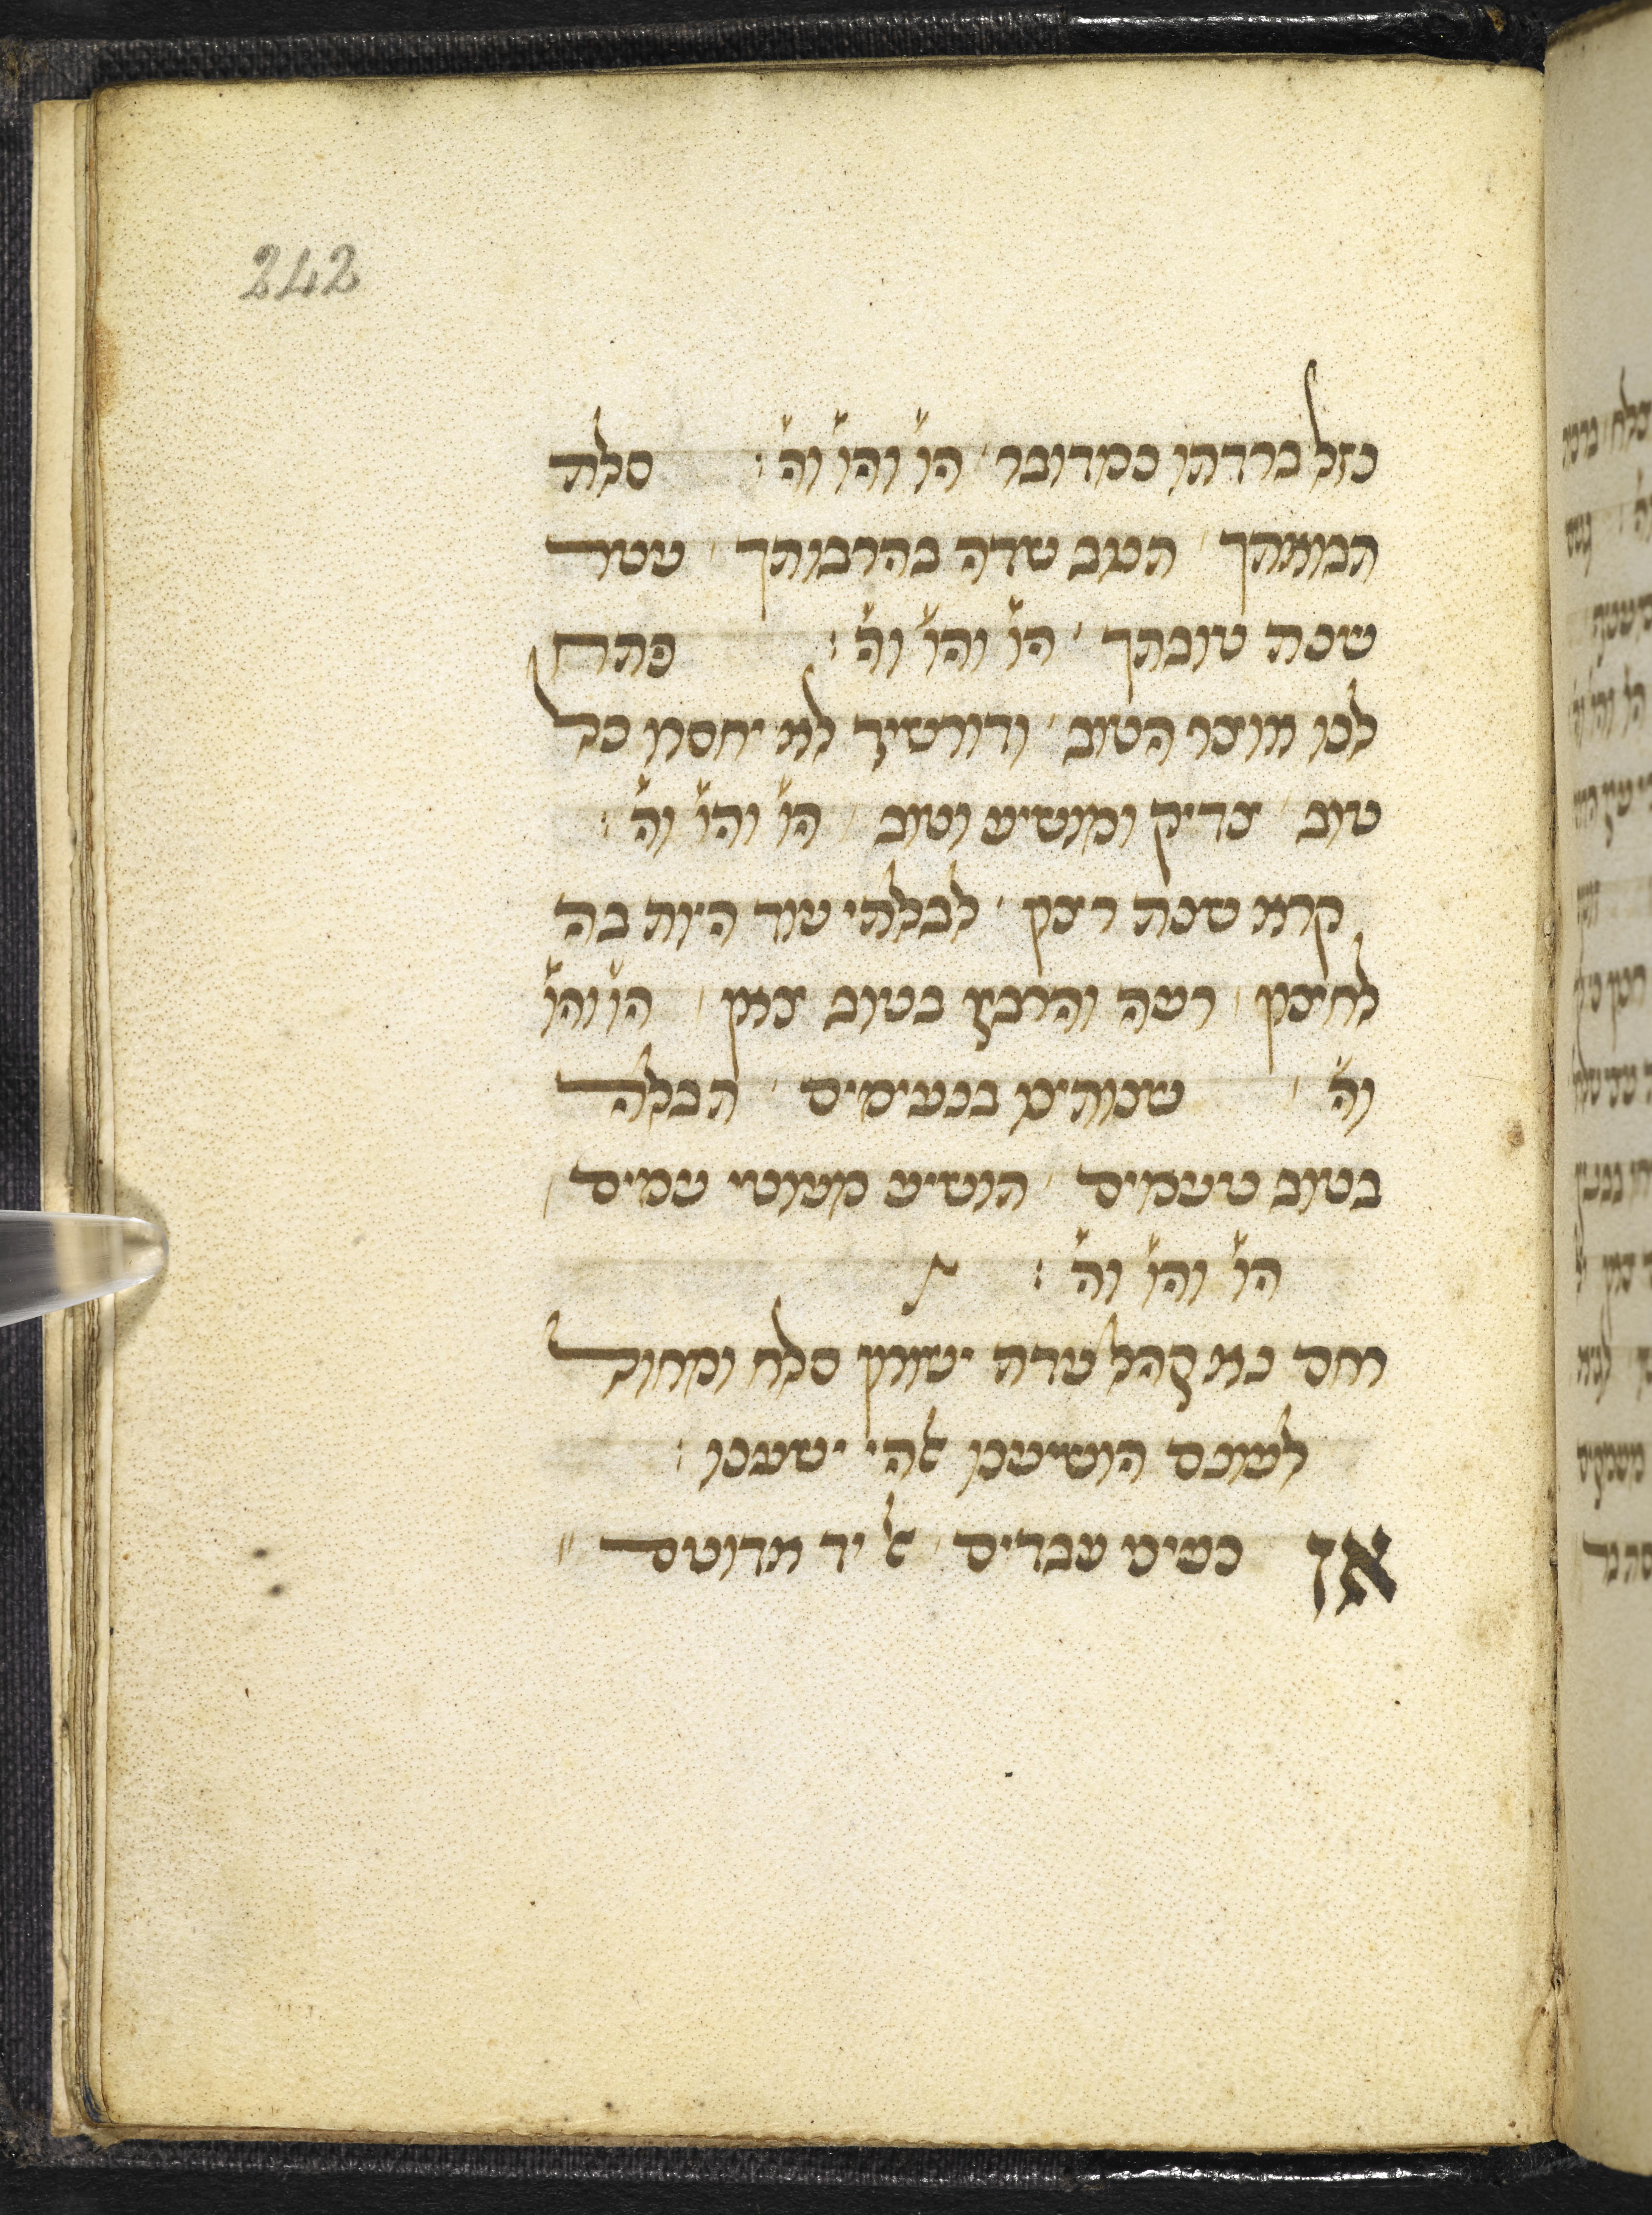 נזל ברדתן כמדובר הו׳ והו׳ וה׳ : סלת
תבואתך הטב שדה בהרבותך עטר
שנת טובתך הו׳ והו׳ וה׳ : פתח
לנו אוצר הטוב ודורשיך לא יחסרו כל
טוב צדיק ומושיע וטוב הו׳ והו׳ וה׳ :
קרא שנת רצון לבלתי עוד היות בה
לחצון רעה והרבץ בטוב צאן הו׳ והו׳
וה׳ שנותים בנעימים תכלה
בטוב טעמים הושיע מעוטי עמים
הו׳ והו׳ וה׳ : ת
רחם נא קהל עדת ישורון סלח ומחול
לעונם הושיענו אלהי ישענו :
אז כעיני עבדים אל יד אדונים
242